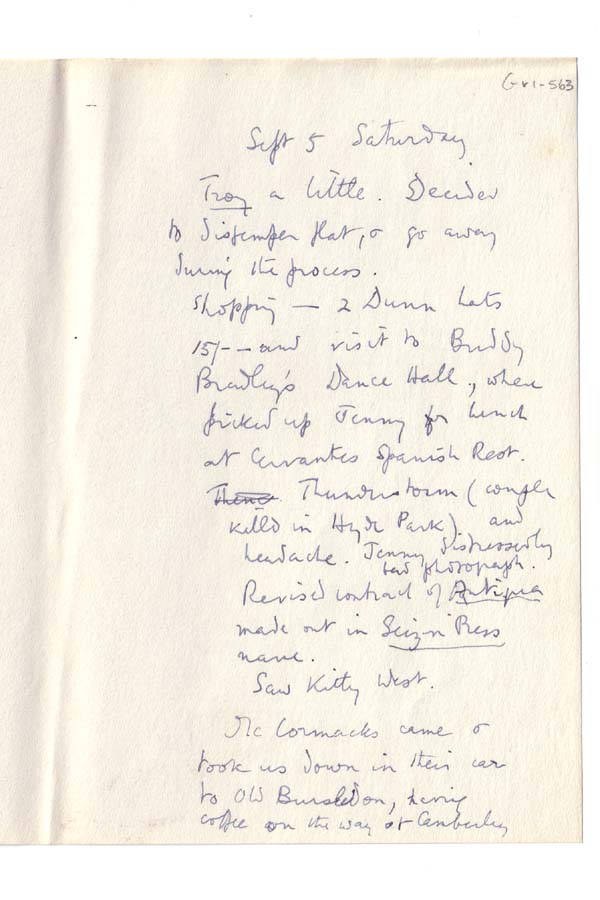 Gr1-563
Sept 5 Saturday.
Troy a little. Decided
to distemper flat, & go away
during the process.
Shopping — 2 Dunn hats
15/- – and visit to Buddy
Bradley's Dance Hall, where
picked up Jenny for lunch
at Cervantes Spanish Rest.
Thence Thunderstorm (couple
killed in Hyde Park) and
headache. Jenny distressed by
bad photograph.
Revised contract of Antigua
made out in Seizin Press
name.
Saw Kitty West.
McCormacks came &
took us down in their car
to Old Bursledon, having
coffee on the way at Camberley